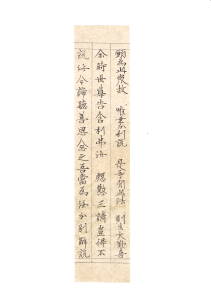 願為此眾故　唯垂分別說　是等聞此法　則生大歡喜
爾時世尊告舍利弗汝已慇懃三請豈得不
說汝今諦聽善思念之吾當為汝分別解說